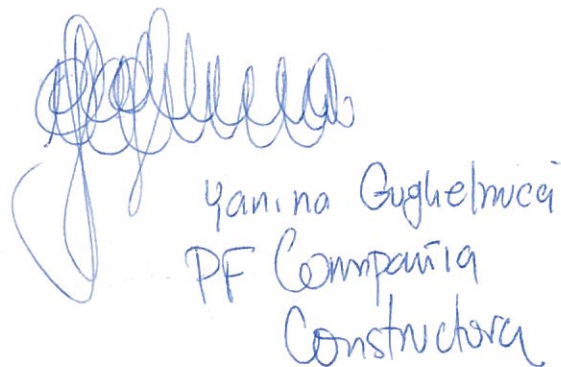 Yanina Guglielmuci
PF Compañia
Constructora